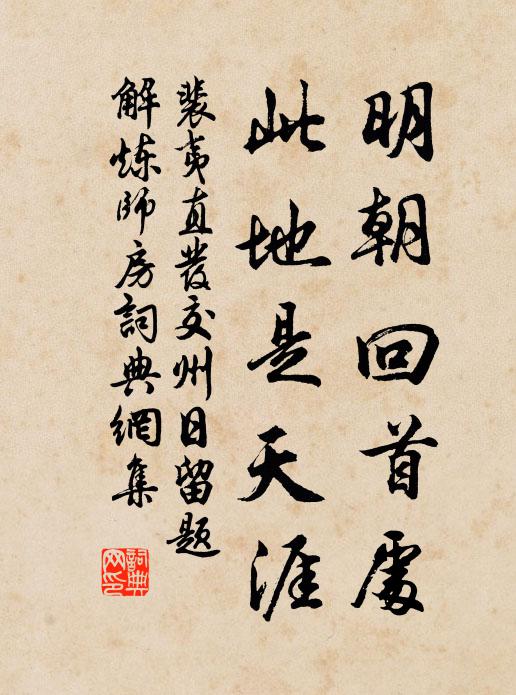 明朝回首處
此地是天涯
裴夷直發交州日留題
解煉師房詞典網集
詞典
网印